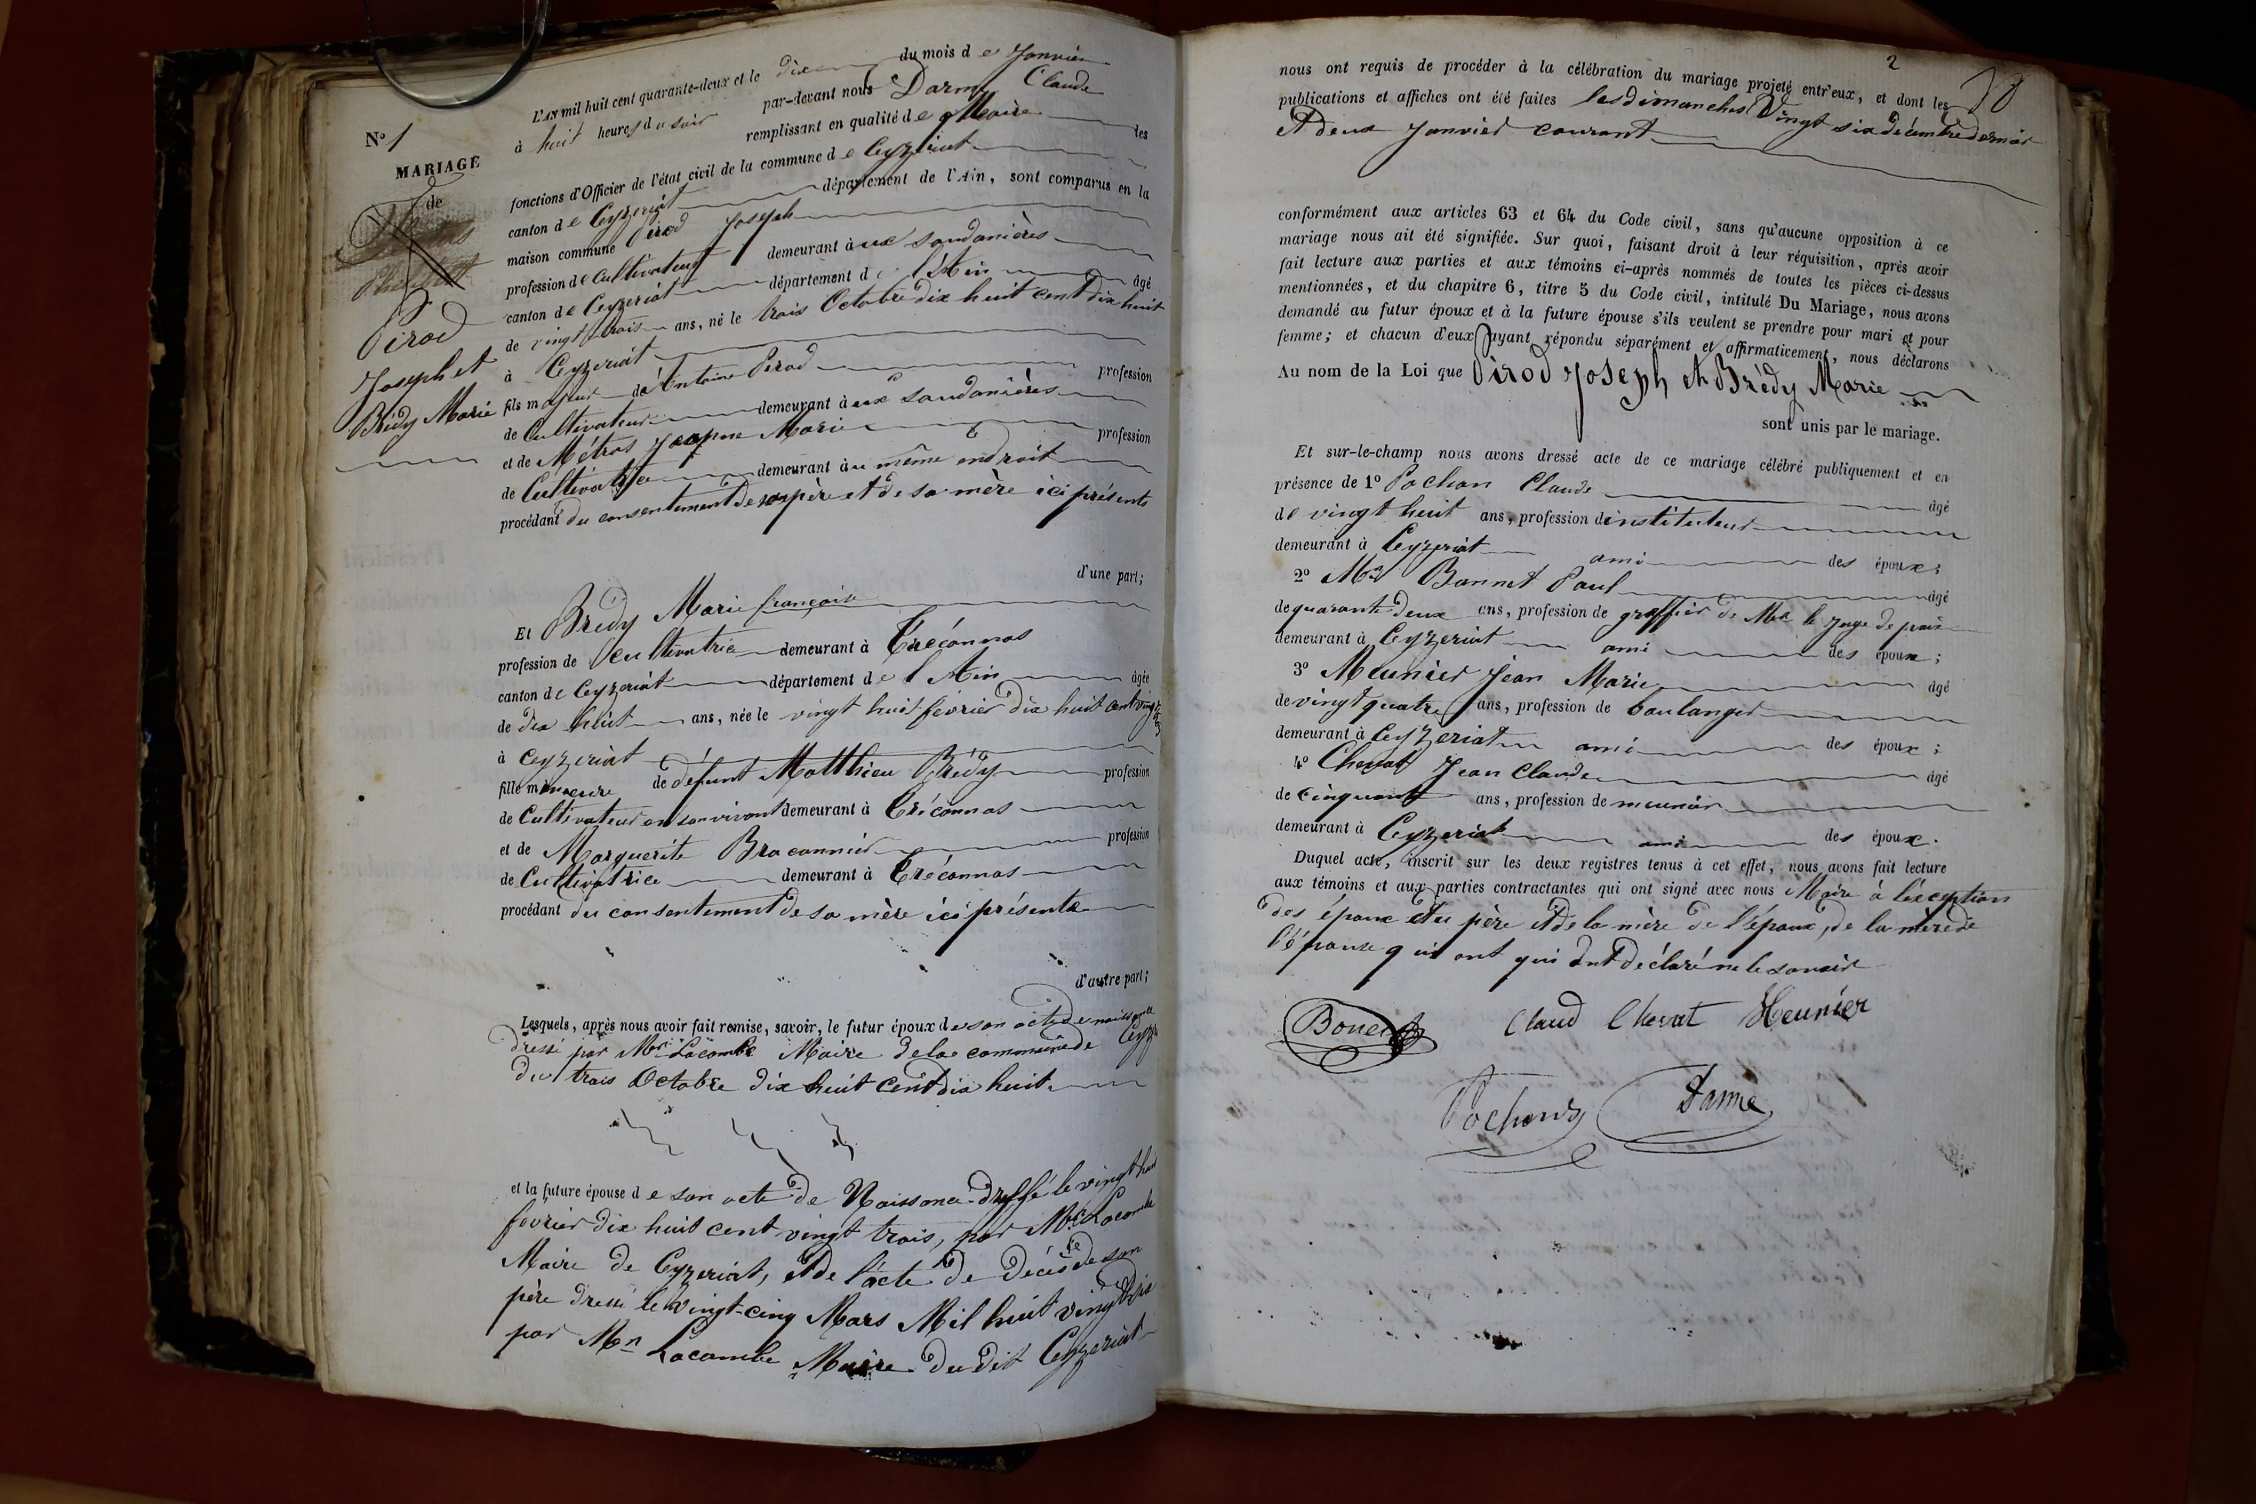 N° 1
MARIAGE
de
Pirod
Joseph et
Brédy Marie
L'AN mil huit cent quarante-deux et le dix du mois de Janvier
à huit heures du soir par-devant nous Darme Claude
remplissant en qualité de Maire les
fonctions d'Officier de l'état civil de la commune de Ceyzeriat
canton de Ceyzeriat département de l'Ain, sont comparus en la
maison commune Pirod Joseph
profession de Cultivateur demeurant à aux Soudanières
canton de Ceyzeriat département de l'Ain âgé
de vingt trois ans, né le trois Octobre dix huit cent dix huit
à Ceyzeriat
fils majeur de Antoine Pirod profession
de Cultivateur demeurant à aux Soudanières
et de Métras Marie profession
de Cultivatrice demeurant à u même endroit
procédant du consentement de son père et de sa mère ici présents
d'une part;
Et Brédy Marie françoise
profession de cultivatrice demeurant à Tréconnas
canton de Ceyzeriat département de l'Ain âgée
de dix huit ans, née le vingt huit février dix huit cent vingt trois
à Ceyzeriat
fille mineure de défunt Matthieu Brédy profession
de Cultivateur en son vivant demeurant à Tréconnas
et de Marguerite Braconnier profession
de Cultivatrice demeurant à Tréconnas
procédant du consentement de sa mère ici présente
d'autre part;
Lesquels, après nous avoir fait remise, savoir, le futur époux de son acte de naissance
dressé par Mr Lacombe Maire de la commune de Ceyz
du trois Octobre dix huit cent dix huit
et la future épouse de son acte de Naissance dressé le vingt huit
février dix huit cent vingt trois, par Mr Lacombe
Maire de Ceyzeriat, et de l'acte de décès de son
père dressé le vingt-cinq Mars Mil huit vingt trois
par Mr Lacombe Maire du dit Ceyzeriat
2
nous ont requis de procéder à la célébration du mariage projeté entr'eux, et dont les
publications et affiches ont été faites les dimanches Vingt six décembre dernier
et deux Janvier courant
conformément aux articles 63 et 64 du Code civil, sans qu'aucune opposition à ce
mariage nous ait été signifiée. Sur quoi, faisant droit à leur réquisition, après avoir
fait lecture aux parties et aux témoins ci-après nommés de toutes les pièces ci-dessus
mentionnées, et du chapitre 6, titre 5 du Code civil, intitulé Du Mariage, nous avons
demandé au futur époux et à la future épouse s'ils veulent se prendre pour mari et pour
femme; et chacun d'eux ayant répondu séparément et affirmativement, nous déclarons
Au nom de la Loi que Pirod Joseph et Brédy Marie
sont unis par le mariage.
Et sur-le-champ nous avons dressé acte de ce mariage célébré publiquement et en
présence de 1° Pochon Claude âgé
de vingt huit ans, profession d'instituteur
demeurant à Ceyzeriat ami des époux;
2° Mr Bonnet Paul âgé
de quarante deux ans, profession de greffier de Mr le Juge de paix
demeurant à Ceyzeriat ami des époux;
3° Meunier Jean Marie âgé
de vingt quatre ans, profession de boulanger
demeurant à Ceyzeriat ami des époux;
4° Chevat Jean Claude âgé
de cinquante ans, profession de meunier
demeurant à Ceyzeriat ami des époux.
Duquel acte, inscrit sur les deux registres tenus à cet effet, nous avons fait lecture
aux témoins et aux parties contractantes qui ont signé avec nous Maire à l'exception
des époux et du père et de la mère de l'époux, de la mère de
l'épouse qui ont qui ont déclaré ne le savoir
Claud Chevat Meunier
Pochon Darme